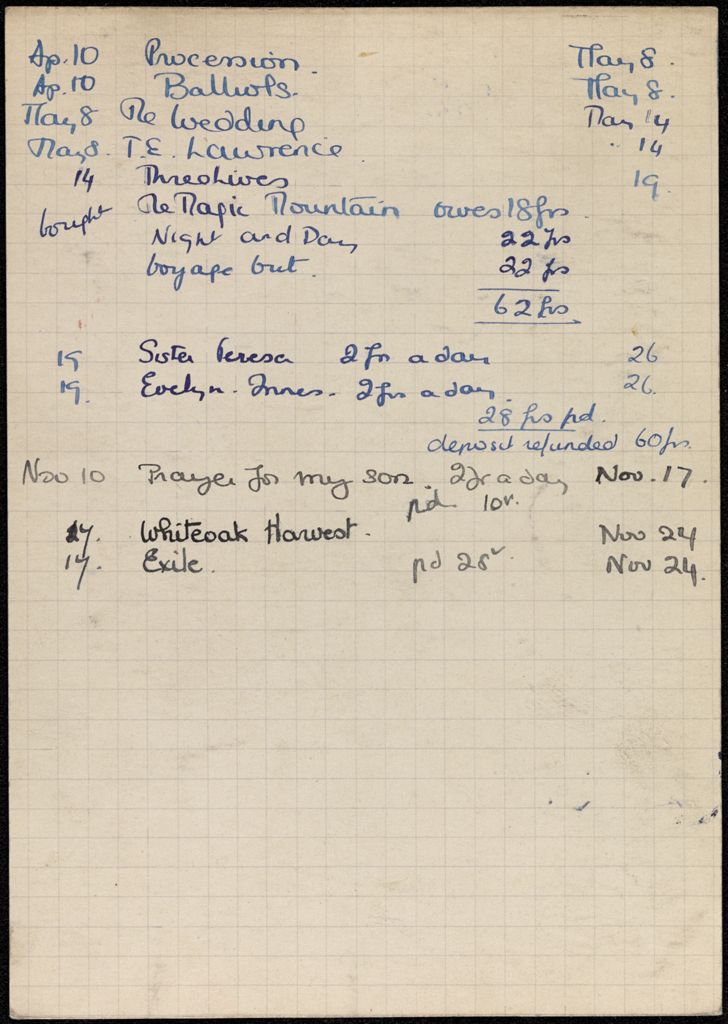 Ap. 10 Procession. May 8.
Ap. 10 Balliols. May 8.
May 8 The Wedding May 14
May 8. T.E. Lawrence " 14
14 Three Lives 19
bought The Magic Mountain owes 18 frs
Night and Day 22 frs
Voyage Out. 22 frs
62 frs
19 Sister Teresa 2 fr a day 26
19. Evelyn Innes. 2 frs a day. 26.
28 frs pd.
deposit refunded 60 frs.
Nov 10 Prayer for my son. 2 fr a day Nov. 17.
pd 10
17. Whiteoak Harvest. Nov 24
17. Exile. pd 28 Nov 24.